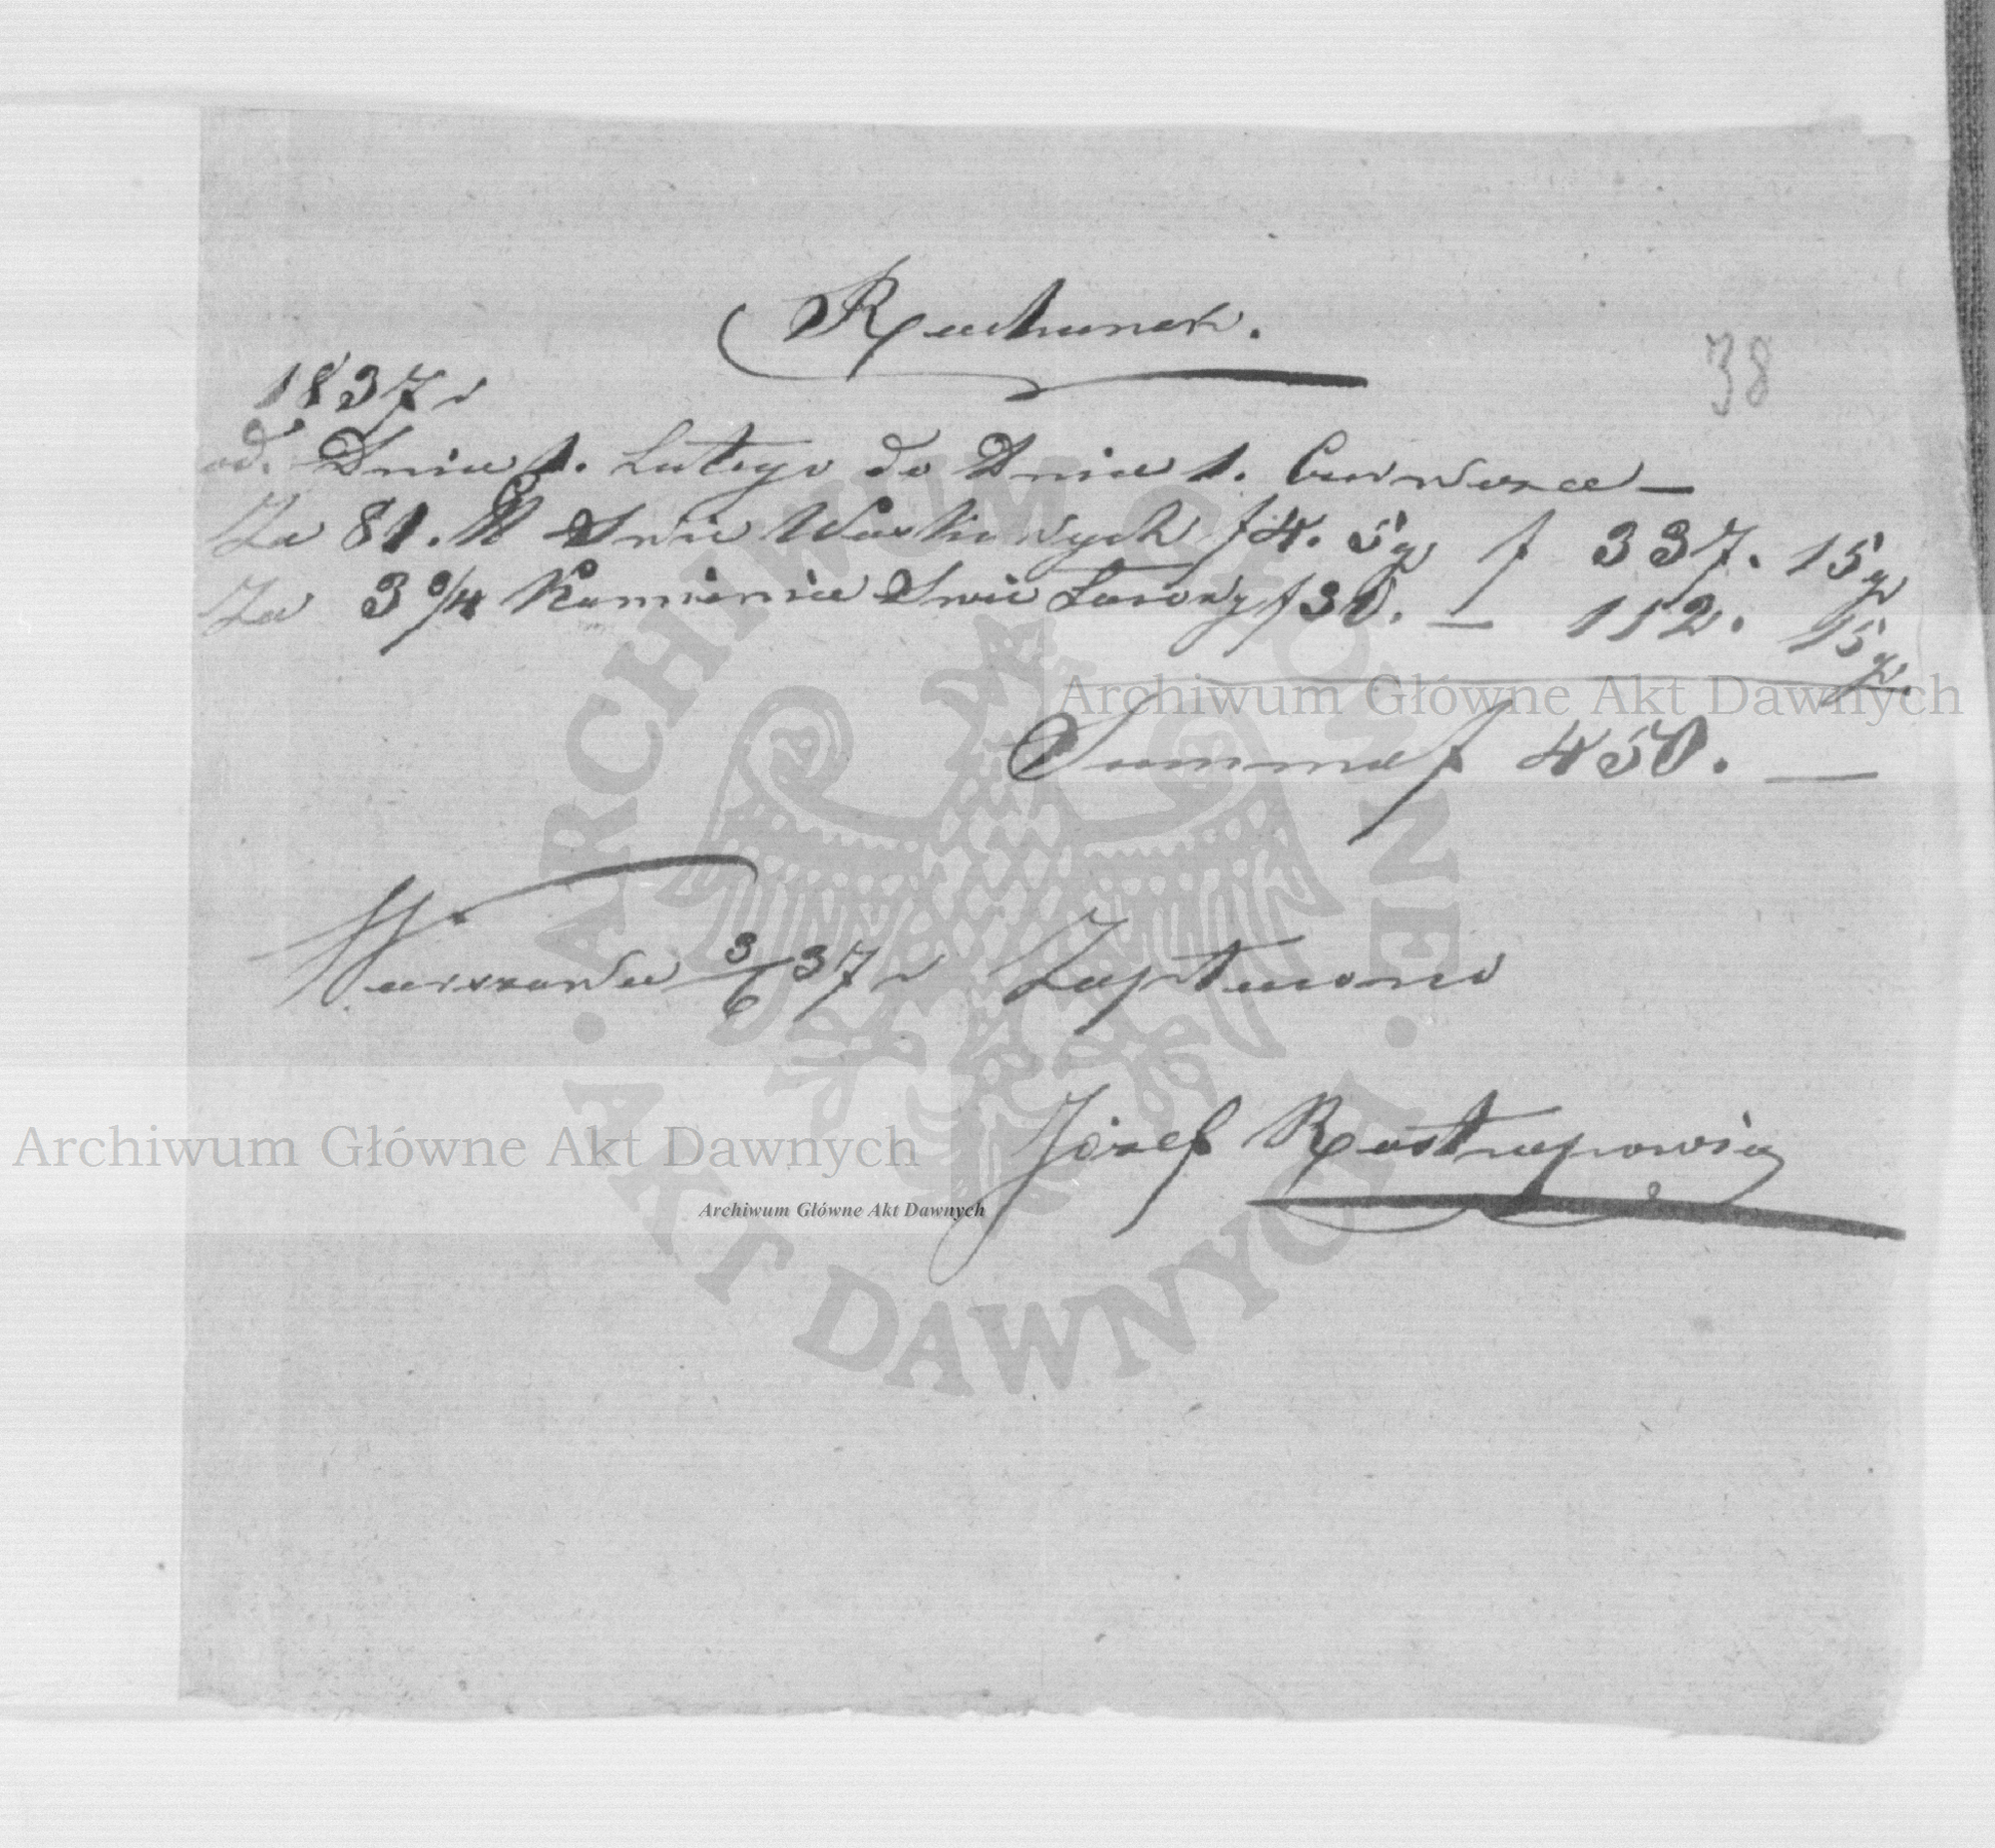 Rachunek.
38
1837 r
od. Dnia 1. Lutego do Dnia 1. Czerwca —
Za 81. ℔ Swic Woskowych f 4. 5 gr f 337. 15 gr
Za 3 3/4 Kamienia Swic Łaiowy f 30. — 112. 15 gr.
Summa f 450. —
Warszawa 3/6 37 r Zapłacono
Józef Rostropowicz
ARCHIWUM GŁÓWNE
AKT DAWNYCH
Archiwum Główne Akt Dawnych
Archiwum Główne Akt Dawnych
Archiwum Główne Akt Dawnych